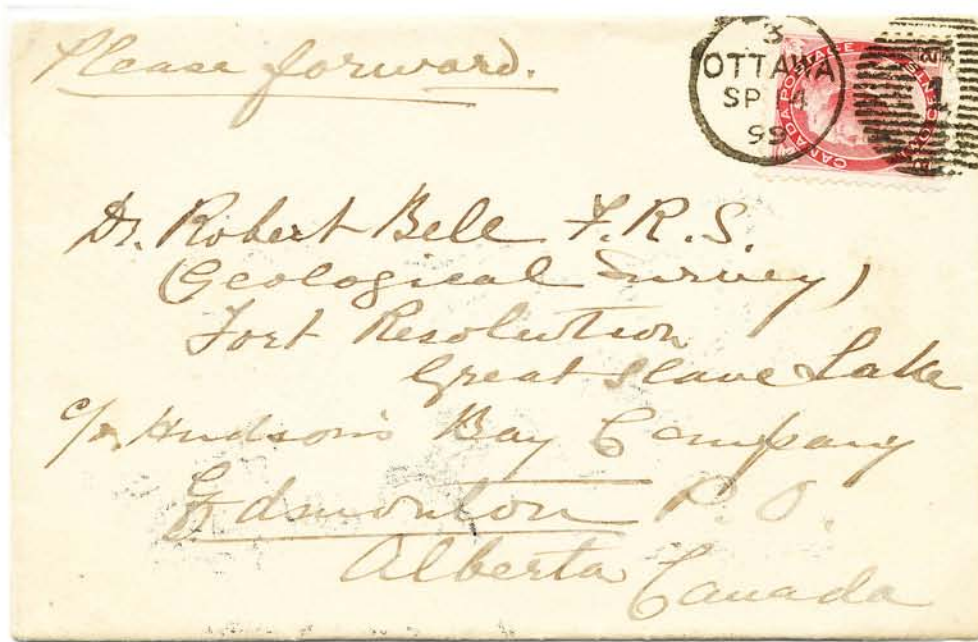 Please forward.
3
OTTAWA
SP 14
99
CANADA POSTAGE
1
Dr. Robert Bell F.R.S.
(Geological Survey)
Fort Resolution
Great Slave Lake
c/o Hudson's Bay Company
Edmonton P.O.
Alberta
Canada